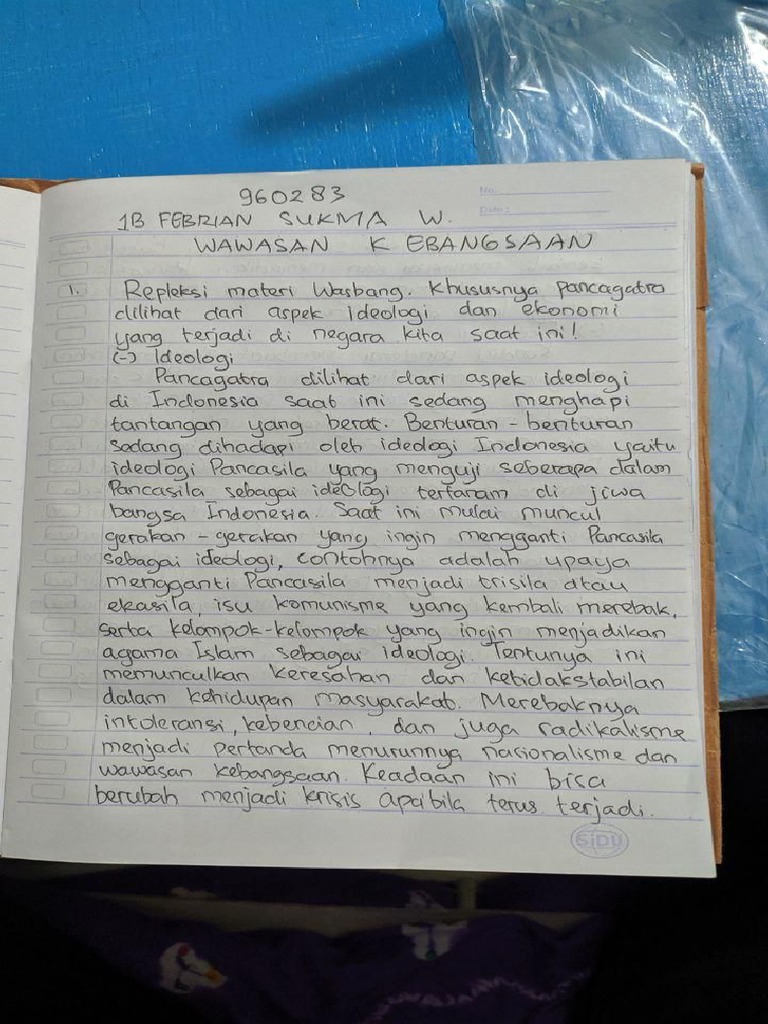 960283
No.
Date:
1B FEBRIAN SUKMA W.
WAWASAN KEBANGSAAN
1. Repleksi materi Wasbang. Khususnya pancagatra
dilihat dari aspek ideologi dan ekonomi
yang terjadi di negara kita saat ini!
(-) Ideologi
Pancagatra dilihat dari aspek ideologi
di Indonesia saat ini sedang menghapi
tantangan yang berat. Benturan - benturan
sedang dihadapi oleh ideologi Indonesia yaitu
ideologi Pancasila yang menguji seberapa dalam
Pancasila sebagai ideologi tertaram di jiwa
bangsa Indonesia. Saat ini mulai muncul
gerakan - gerakan yang ingin mengganti Pancasila
sebagai ideologi, contohnya adalah upaya
mengganti Pancasila menjadi trisila atau
ekasila, isu komunisme yang kembali merebak,
serta kelompok-kelompok yang ingin menjadikan
agama Islam sebagai ideologi. Tentunya ini
memunculkan keresahan dan ketidakstabilan
dalam kehidupan masyarakat. Merebaknya
intoleransi, kebencian, dan juga radikalisme
menjadi pertanda menurunnya nasionalisme dan
wawasan kebangsaan. Keadaan ini bisa
berubah menjadi krisis apabila terus terjadi.
SiDU